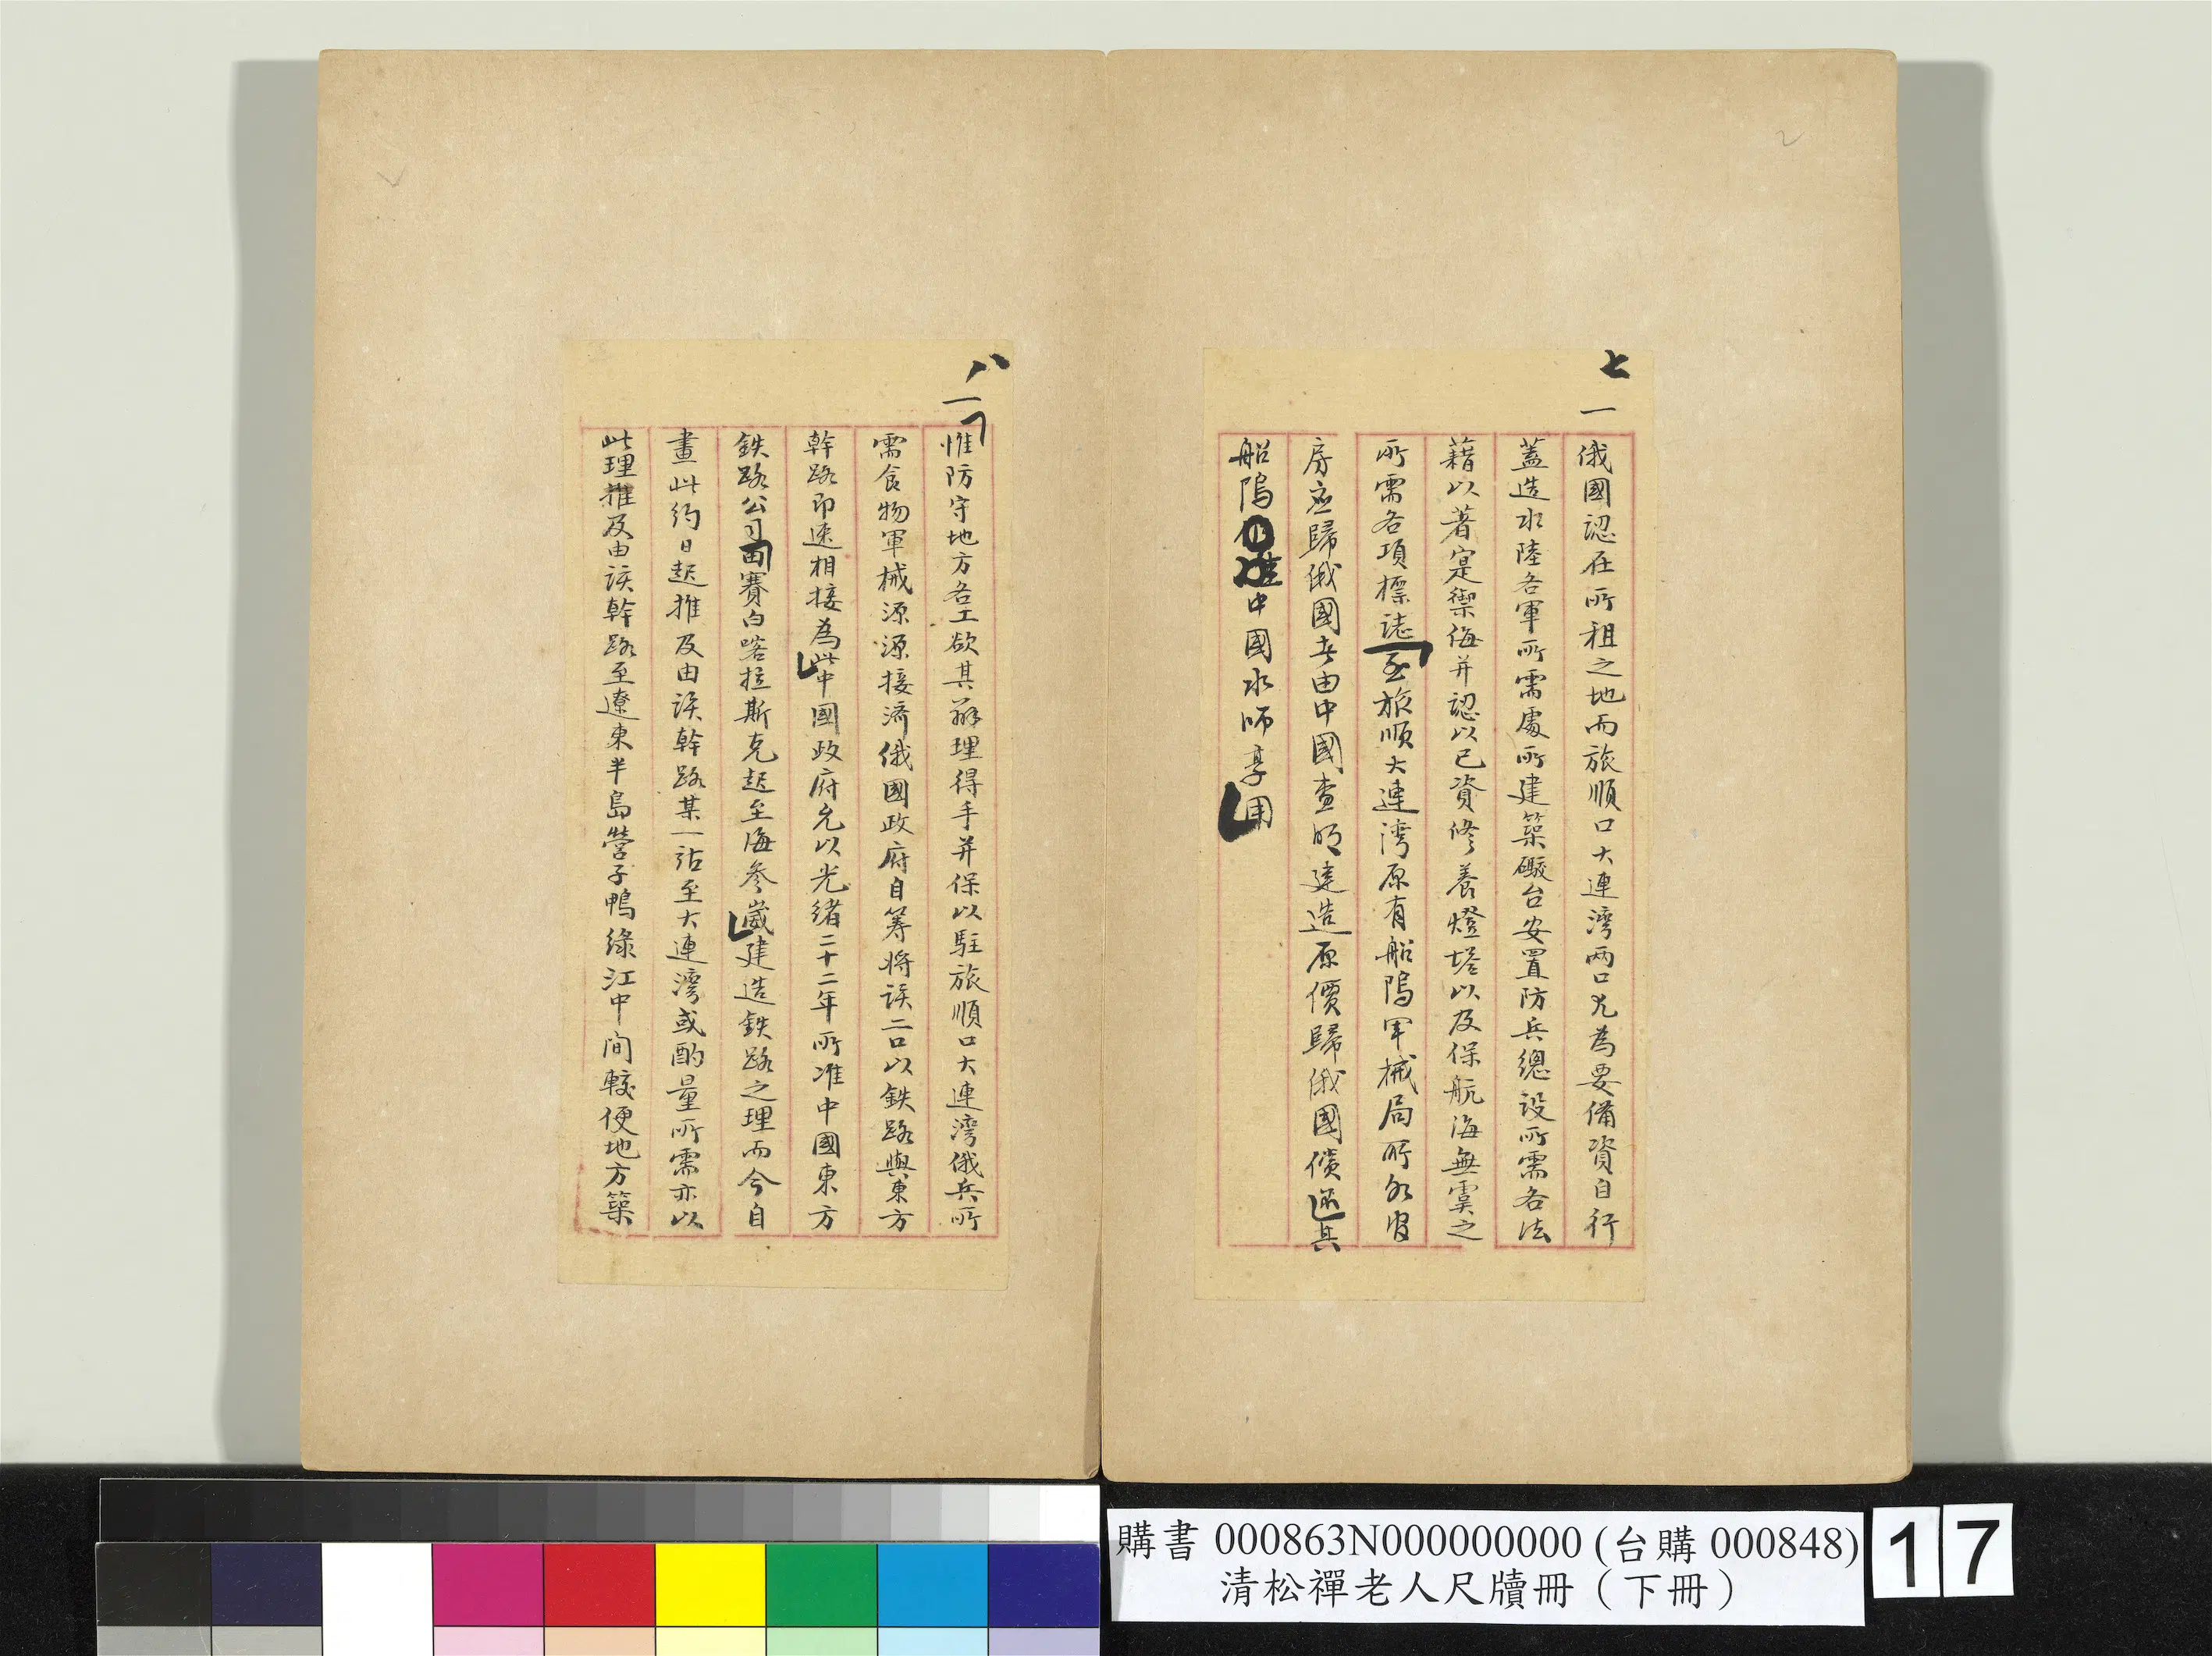 七
一
俄國認在所租之地而旅順口大連灣兩口尤為要備資自行
蓋造水陸各軍所需處所建築礮台安置防兵總設所需各法
藉以著寔禦侮并認以已資修養燈塔以及保航海無虞之
所需各項標誌至旅順大連灣原有船塢軍械局所
房應歸俄國者由中國查明建造原價歸俄國償還其
船塢中國水師享用
八
一
惟防守地方各工欲其辦理得手并保以駐旅順口大連灣俄兵所
需食物軍械源源接濟俄國政府自籌將該二口以鉄路與東方
幹路即速相接為此中國政府允以光緒二十二年所准中國東方
鉄路公司由賽白喀拉斯克起至海參崴建造鉄路之理而今自
畫此約日起推及由該幹路某一站至大連灣或酌量所需亦以
此理推及由該幹路至遼東半島營子鴨綠江中間較便地方築
購書 000863N000000000 (台購 000848)
清松禪老人尺牘冊（下冊）
17